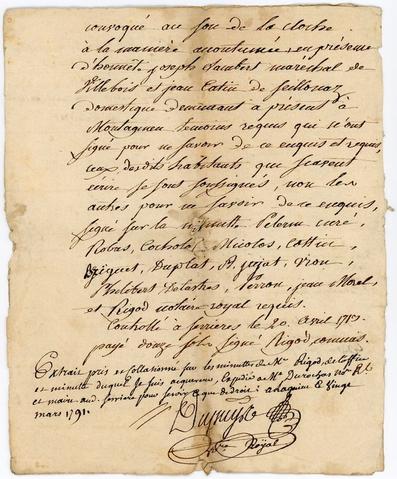 convoqué au son de la cloche
à la maniere acoutumée, en présence
d'honnête Joseph Lambert maréchal de
Villebois et jean Catin de seillonaz
domestique demeurant à présent à
Montagneu temoins requis qui n'ont
signé pour ne savoir de ce enquis et requis,
ceux desdits habitants que scavent
écrire se sont soussignés, non les
autres pour ne savoir de ce enquis,
signé sur la minutte Pelerin curé,
Robas, Cochola, Nicolas, Cottin,
Briguet, Duplat, A, jujat, Vion,
Philibert Delashes, Perron, jean Morel
et Rigod notaire royal requis.
Controllé à serrieres le 20. avril
payé douze sols signé Rigod commis.
Extrait pris et collationné sur les minuttes de Me Rigod, de l'office
et minutte duquel Je suis acquereur, expédié a Me Durochas
et main aud. serriere pour servir a que de droit a
mars 1791.
Royal